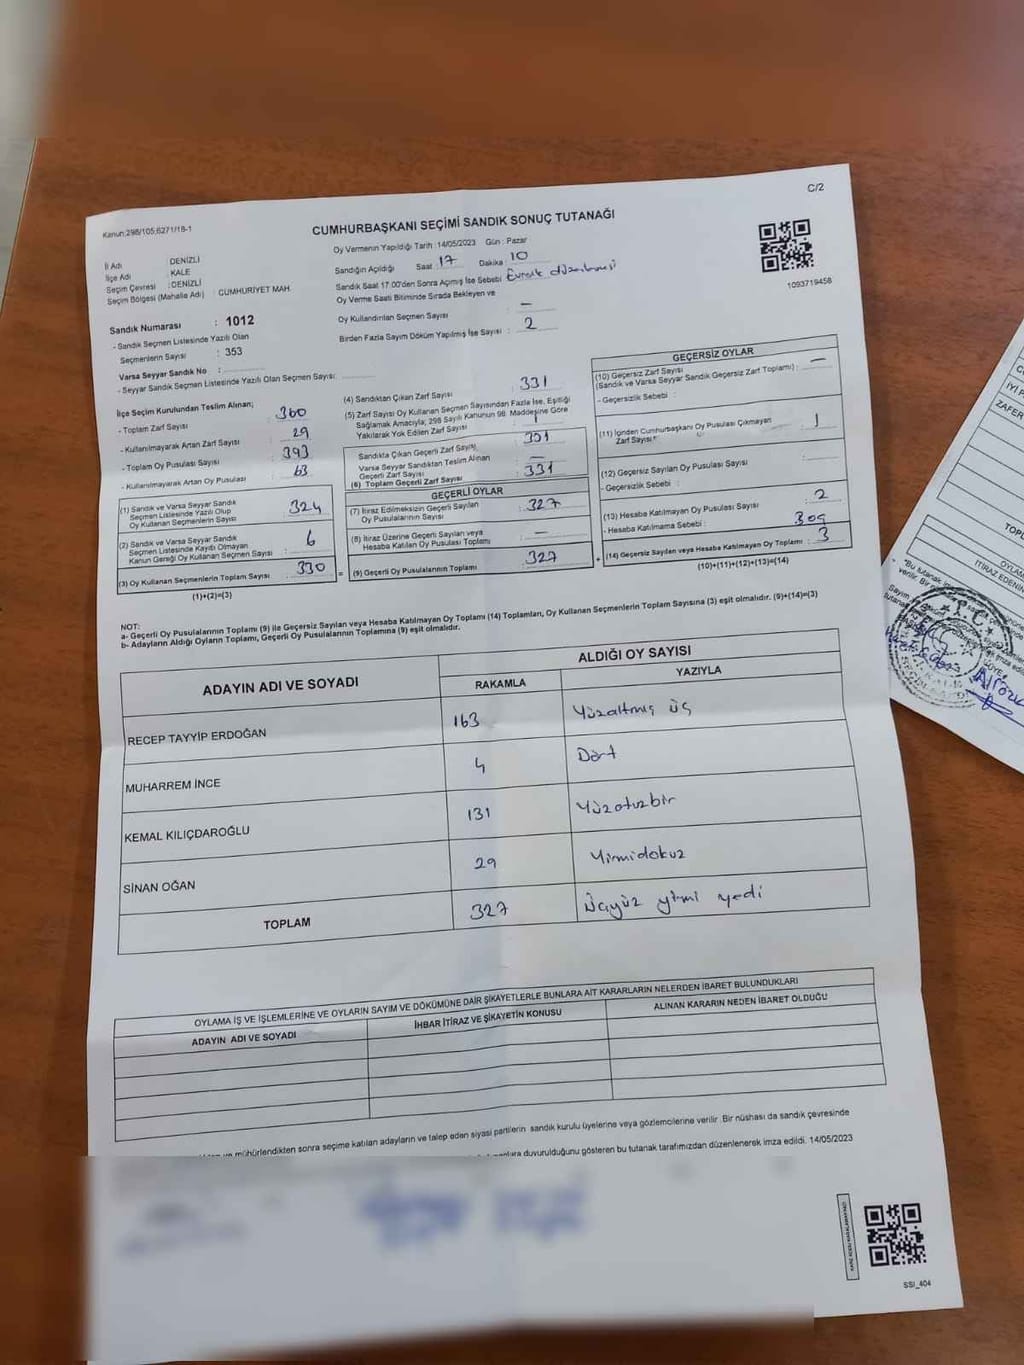 C/2
Kanun:298/105;6271/18-1
CUMHURBAŞKANI SEÇİMİ SANDIK SONUÇ TUTANAĞI
İl Adı : DENİZLİ
İlçe Adı : KALE
Seçim Çevresi : DENİZLİ
Seçim Bölgesi (Mahalle Adı) : CUMHURİYET MAH.
Oy Vermenin Yapıldığı Tarih : 14/05/2023 Gün : Pazar
Sandığın Açıldığı Saat : 17 Dakika : 10
Sandık Saat 17:00'den Sonra Açımış İse Sebebi :
Oy Verme Saati Bitiminde Sırada Bekleyen ve
Oy Kullandırılan Seçmen Sayısı : -
Birden Fazla Sayım Döküm Yapılmış İse Sayısı : 2
1093719458
Sandık Numarası : 1012
- Sandık Seçmen Listesinde Yazılı Olan
Seçmenlerin Sayısı : 353
Varsa Seyyar Sandık No :
- Seyyar Sandık Seçmen Listesinde Yazılı Olan Seçmen Sayısı:
İlçe Seçim Kurulundan Teslim Alınan;
- Toplam Zarf Sayısı : 360
- Kullanılmayarak Artan Zarf Sayısı : 29
- Toplam Oy Pusulası Sayısı : 393
- Kullanılmayarak Artan Oy Pusulası : 63
(1) Sandık ve Varsa Seyyar Sandık
Seçmen Listesinde Yazılı Olup
Oy Kullanan Seçmenlerin Sayısı : 324
(2) Sandık ve Varsa Seyyar Sandık
Seçmen Listesinde Kaydı Olmayan
Kanun Gereği Oy Kullanan Seçmen Sayısı : 6
(3) Oy Kullanan Seçmenlerin Toplam Sayısı : 330
(1)+(2)=(3)
(4) Sandıktan Çıkan Zarf Sayısı : 331
(5) Zarf Sayısı Oy Kullanan Seçmen Sayısından Fazla İse, Eşitliği
Sağlamak Amacıyla; 298 Sayılı Kanunun 98. Maddesine Göre
Yakılarak Yok Edilen Zarf Sayısı : 1
Sandıkta Çıkan Geçerli Zarf Sayısı : 331
Varsa Seyyar Sandıktan Teslim Alınan
Geçerli Zarf Sayısı : -
(6) Toplam Geçerli Zarf Sayısı : 331
GEÇERLİ OYLAR
(7) İtiraz Edilmeksizin Geçerli Sayılan
Oy Pusulalarının Sayısı : 327
(8) İtiraz Üzerine Geçerli Sayılan veya
Hesaba Katılan Oy Pusulası Toplamı : -
(9) Geçerli Oy Pusulalarının Toplamı : 327
GEÇERSİZ OYLAR
(10) Geçersiz Zarf Sayısı
(Sandık ve Varsa Seyyar Sandık Geçersiz Zarf Toplamı) : -
- Geçersizlik Sebebi :
(11) İçinden Cumhurbaşkanı Oy Pusulası Çıkmayan
Zarf Sayısı : 1
(12) Geçersiz Sayılan Oy Pusulası Sayısı :
- Geçersizlik Sebebi :
(13) Hesaba Katılmayan Oy Pusulası Sayısı : 2
- Hesaba Katılmama Sebebi :
(14) Geçersiz Sayılan veya Hesaba Katılmayan Oy Toplamı : 3
(10)+(11)+(12)+(13)=(14)
NOT:
a- Geçerli Oy Pusulalarının Toplamı (9) ile Geçersiz Sayılan veya Hesaba Katılmayan Oy Toplamı (14) Toplamları, Oy Kullanan Seçmenlerin Toplam Sayısına (3) eşit olmalıdır. (9)+(14)=(3)
b- Adayların Aldığı Oyların Toplamı, Geçerli Oy Pusulalarının Toplamına (9) eşit olmalıdır.
ADAYIN ADI VE SOYADI
ALDIĞI OY SAYISI
RAKAMLA YAZIYLA
RECEP TAYYİP ERDOĞAN 163 Yüzaltmış üç
MUHARREM İNCE 4 Dört
KEMAL KILIÇDAROĞLU 131 Yüzotuzbir
SİNAN OĞAN 29 Yirmidokuz
TOPLAM 327 Üçyüz yirmi yedi
OYLAMA İŞ VE İŞLEMLERİNE VE OYLARIN SAYIM VE DÖKÜMÜNE DAİR ŞİKAYETLERLE BUNLARA AİT KARARLARIN NELERDEN İBARET BULUNDUKLARI
ADAYIN ADI VE SOYADI İHBAR İTİRAZ VE ŞİKAYETİN KONUSU ALINAN KARARIN NEDEN İBARET OLDUĞU
mühürlendikten sonra seçime katılan adayların ve talep eden siyasi partilerin sandık kurulu üyelerine veya gözlemcilerine verilir. Bir nüshası da sandık çevresinde
duyurulduğunu gösteren bu tutanak tarafımızdan düzenlenerek imza edildi. 14/05/2023
SSI_404
ZAFER